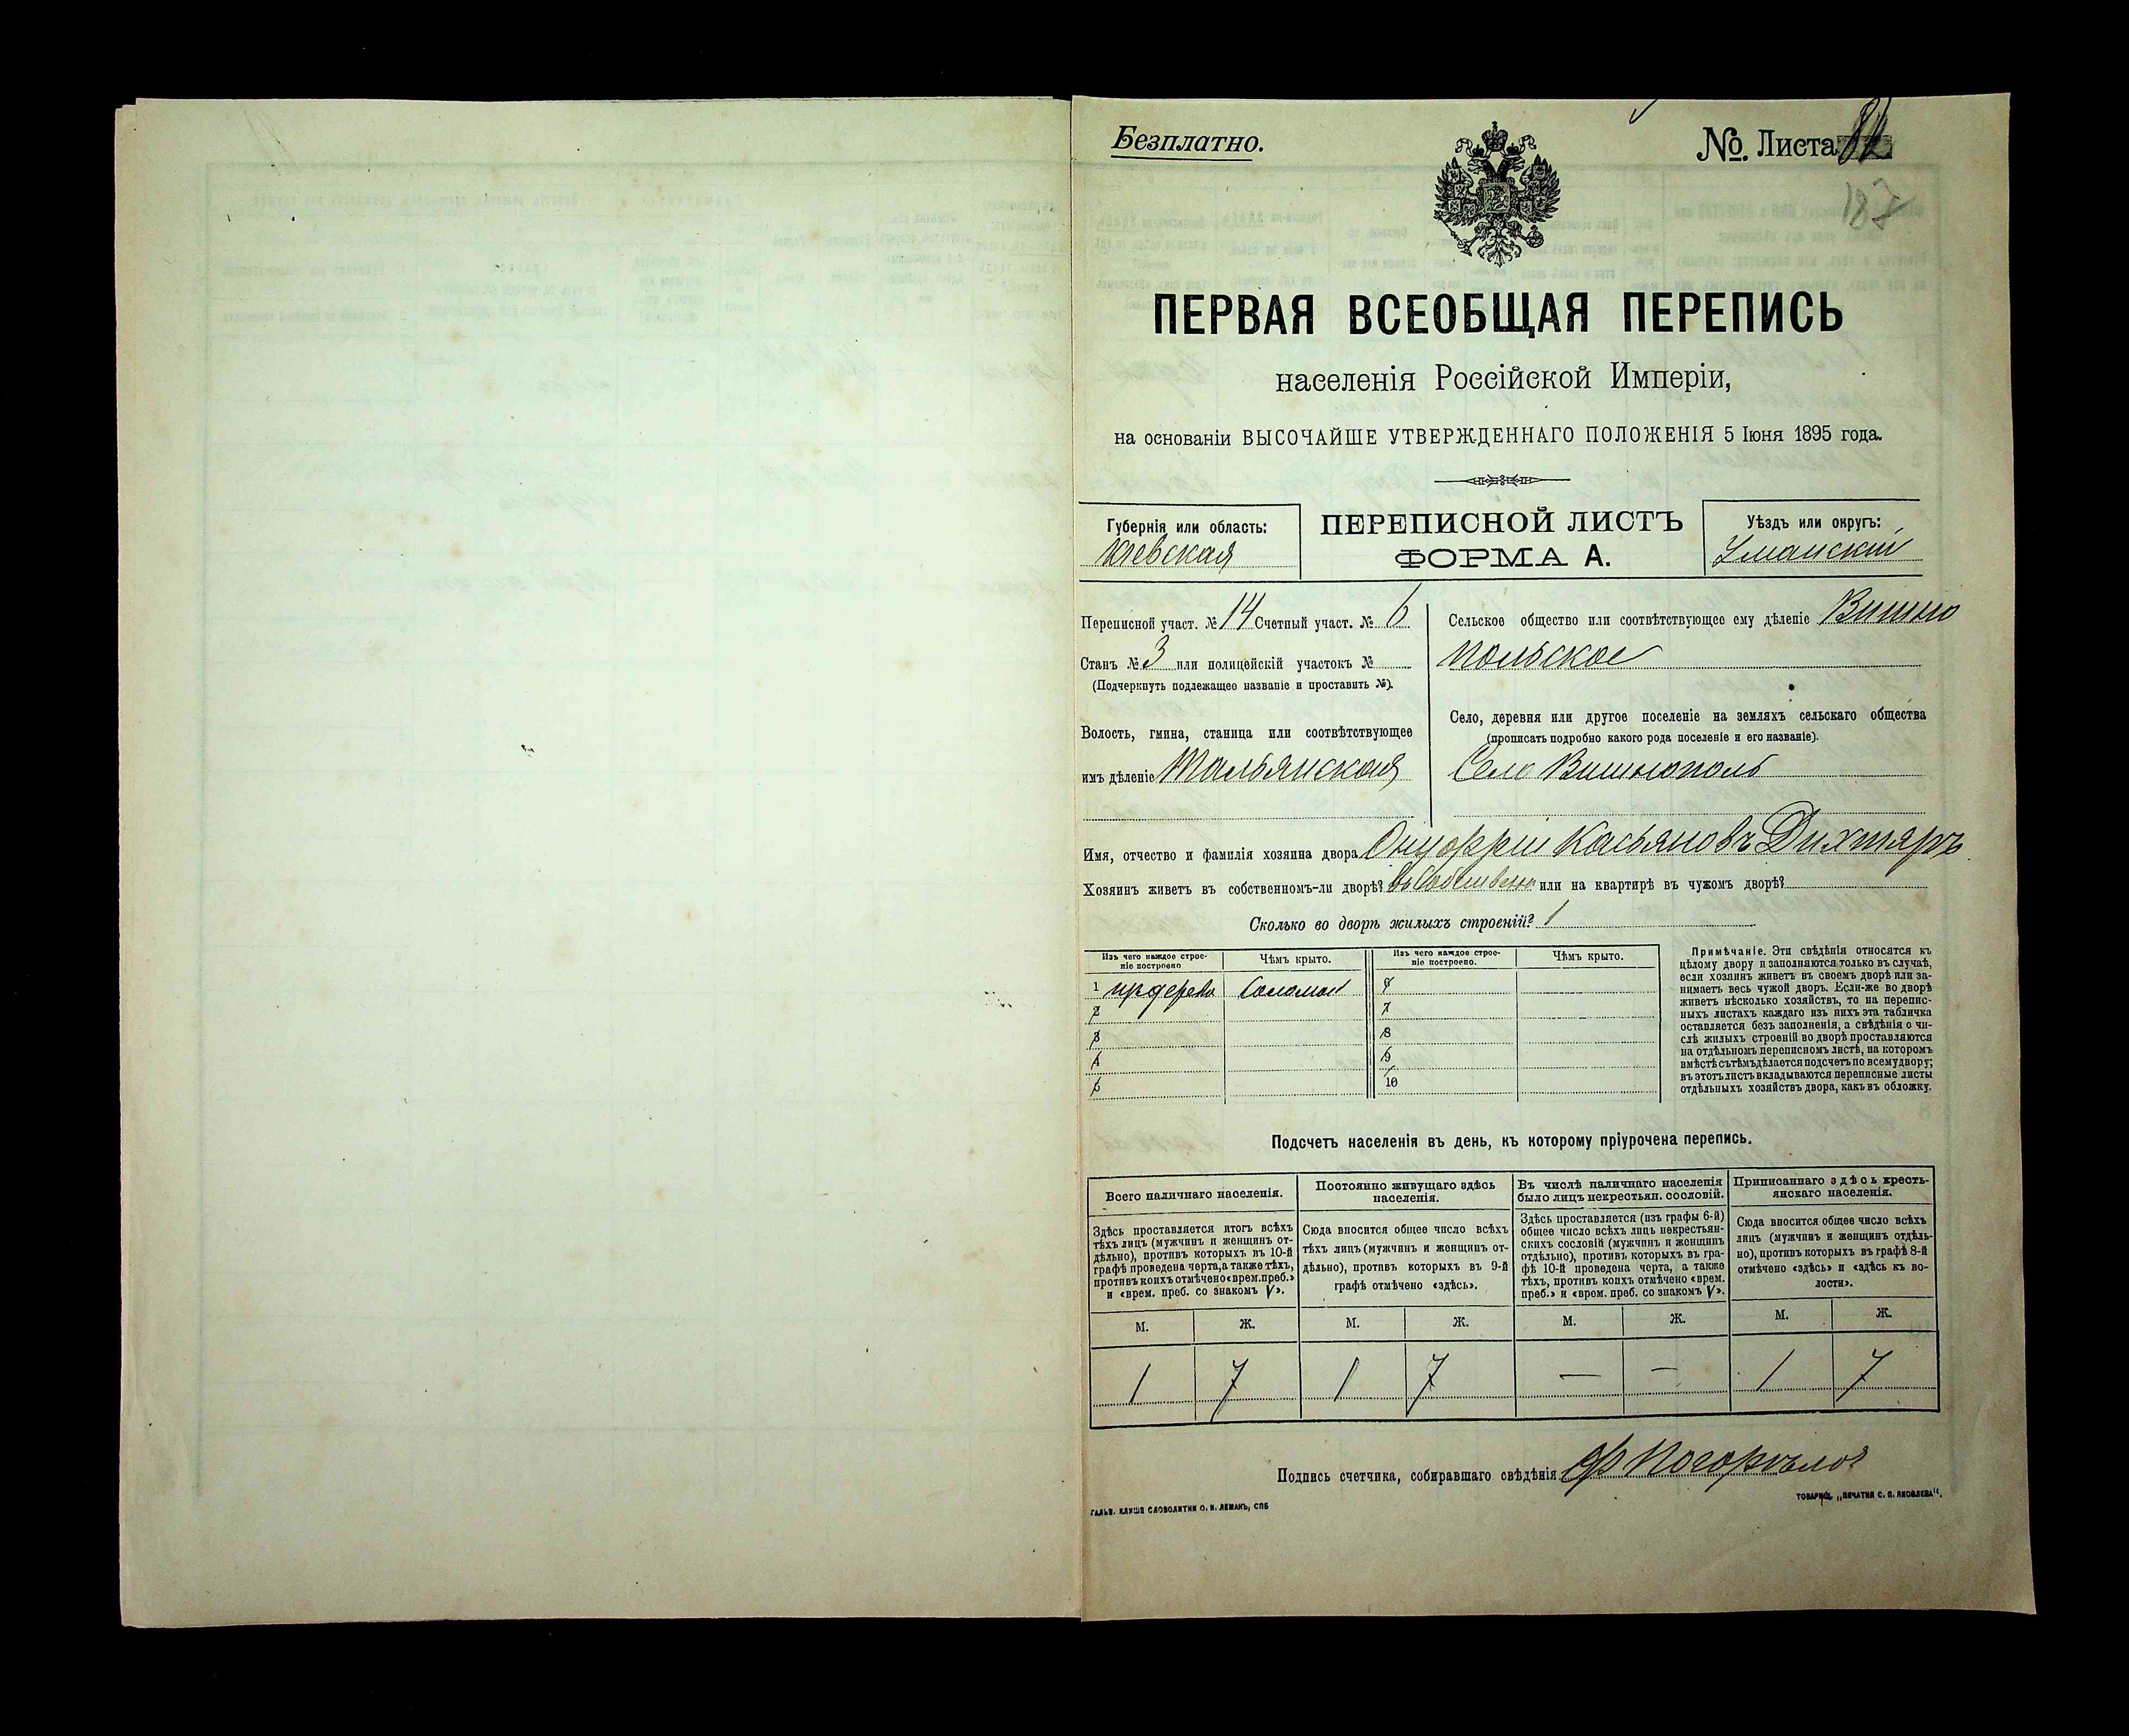 Безплатно.
№. Листа 82
187
ПЕРВАЯ ВСЕОБЩАЯ ПЕРЕПИСЬ
населенія Россійской Имперіи,
на основаніи ВЫСОЧАЙШЕ УТВЕРЖДЕННАГО ПОЛОЖЕНІЯ 5 Іюня 1895 года.
Губернія или область:
Кіевская
ПЕРЕПИСНОЙ ЛИСТЪ
ФОРМА А.
Уѣздъ или округъ:
Уманскій
Переписной участ. № 14 Счетный участ. № 6
Станъ № 3 или полицейскій участокъ №
(Подчеркнуть подлежащее названіе и проставить №).
Волость, гмина, станица или соотвѣтствующее
имъ дѣленіе Тальянская
Сельское общество или соотвѣтствующее ему дѣленіе Вишно
польское
Село, деревня или другое поселеніе на земляхъ сельскаго общества
(прописать подробно какого рода поселеніе и его названіе).
Село Вишнополь
Имя, отчество и фамилія хозяина двора Онуфрій Касьяновъ Дихтяръ
Хозяинъ живетъ въ собственномъ-ли дворѣ? Въ собственн. или на квартирѣ въ чужомъ дворѣ?
Сколько во дворѣ жилыхъ строеній? 1
Изъ чего каждое строе-
ніе построено
Чѣмъ крыто.
Изъ чего каждое строе-
ніе построено.
Чѣмъ крыто.
1 изъ дерева Соломой
2
3
4
5
6
7
8
9
10
Примѣчаніе. Эти свѣдѣнія относятся къ
цѣлому двору и заполняются только въ случаѣ,
если хозяинъ живетъ въ своемъ дворѣ или за-
нимаетъ весь чужой дворъ. Если-же во дворѣ
живетъ нѣсколько хозяйствъ, то на перепис-
ныхъ листахъ каждаго изъ нихъ эта табличка
оставляется безъ заполненія, а свѣдѣнія о чи-
слѣ жилыхъ строеній во дворѣ проставляются
на отдѣльномъ переписномъ листѣ, на которомъ
вмѣстѣ съ тѣмъ дѣлается подсчетъ по всему двору;
въ этотъ листъ вкладываются переписные листы
отдѣльныхъ хозяйствъ двора, какъ въ обложку.
Подсчетъ населенія въ день, къ которому пріурочена перепись.
Всего наличнаго населенія.
Здѣсь проставляется итогъ всѣхъ
тѣхъ лицъ (мужчинъ и женщинъ от-
дѣльно), противъ которыхъ въ 10-й
графѣ проведена черта, а также тѣхъ,
противъ коихъ отмѣчено «врем. преб.»
и «врем. преб. со знакомъ V».
Постоянно живущаго здѣсь
населенія.
Сюда вносится общее число всѣхъ
тѣхъ лицъ (мужчинъ и женщинъ от-
дѣльно), противъ которыхъ въ 9-й
графѣ отмѣчено «здѣсь».
Въ числѣ наличнаго населенія
было лицъ некрестьян. сословій.
Здѣсь проставляется (изъ графы 6-й)
общее число всѣхъ лицъ некрестьян-
скихъ сословій (мужчинъ и женщинъ
отдѣльно), противъ которыхъ въ гра-
фѣ 10-й проведена черта, а также
тѣхъ, противъ коихъ отмѣчено «врем.
преб.» и «врем. преб. со знакомъ V».
Приписаннаго здѣсь кресть-
янскаго населенія.
Сюда вносится общее число всѣхъ
лицъ (мужчинъ и женщинъ отдѣль-
но), противъ которыхъ въ графѣ 8-й
отмѣчено «здѣсь» и «здѣсь къ во-
лости».
М. Ж. М. Ж. М. Ж. М. Ж.
1 7 1 7 — — 1 7
Подпись счетчика, собиравшаго свѣдѣнія
ГАЛЬВ. КЛИШЕ СЛОВОЛИТНИ О. И. ЛЕМАНЪ, СПБ
ТОВАРИЩ. „ПЕЧАТНЯ С. П. ЯКОВЛЕВА“.